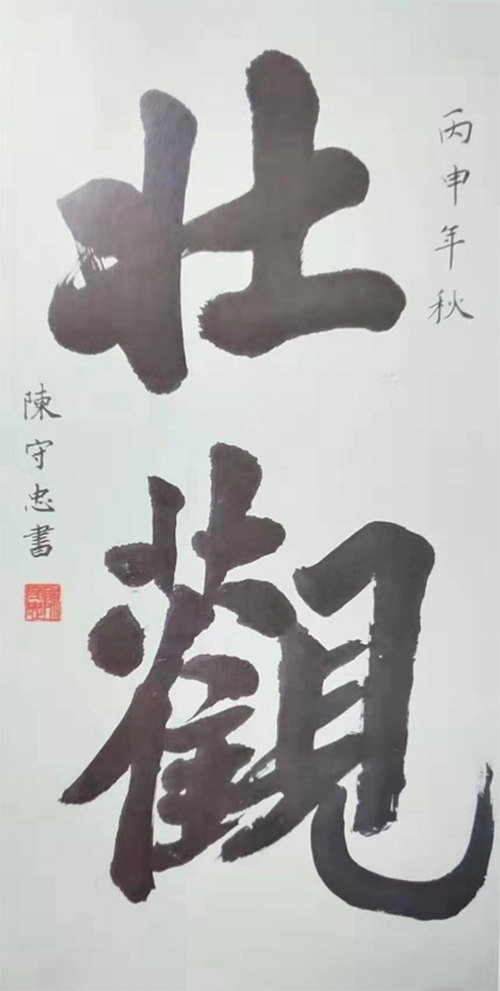 丙申年秋
壯觀
陳守忠書